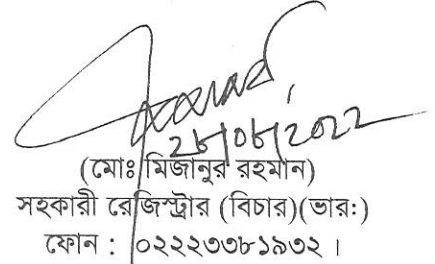 (মোঃ মিজানুর রহমান)
সহকারী রেজিস্ট্রার (বিচার)(ভার:)
ফোন : ০২২২৩৩৮১৯৩২ ।